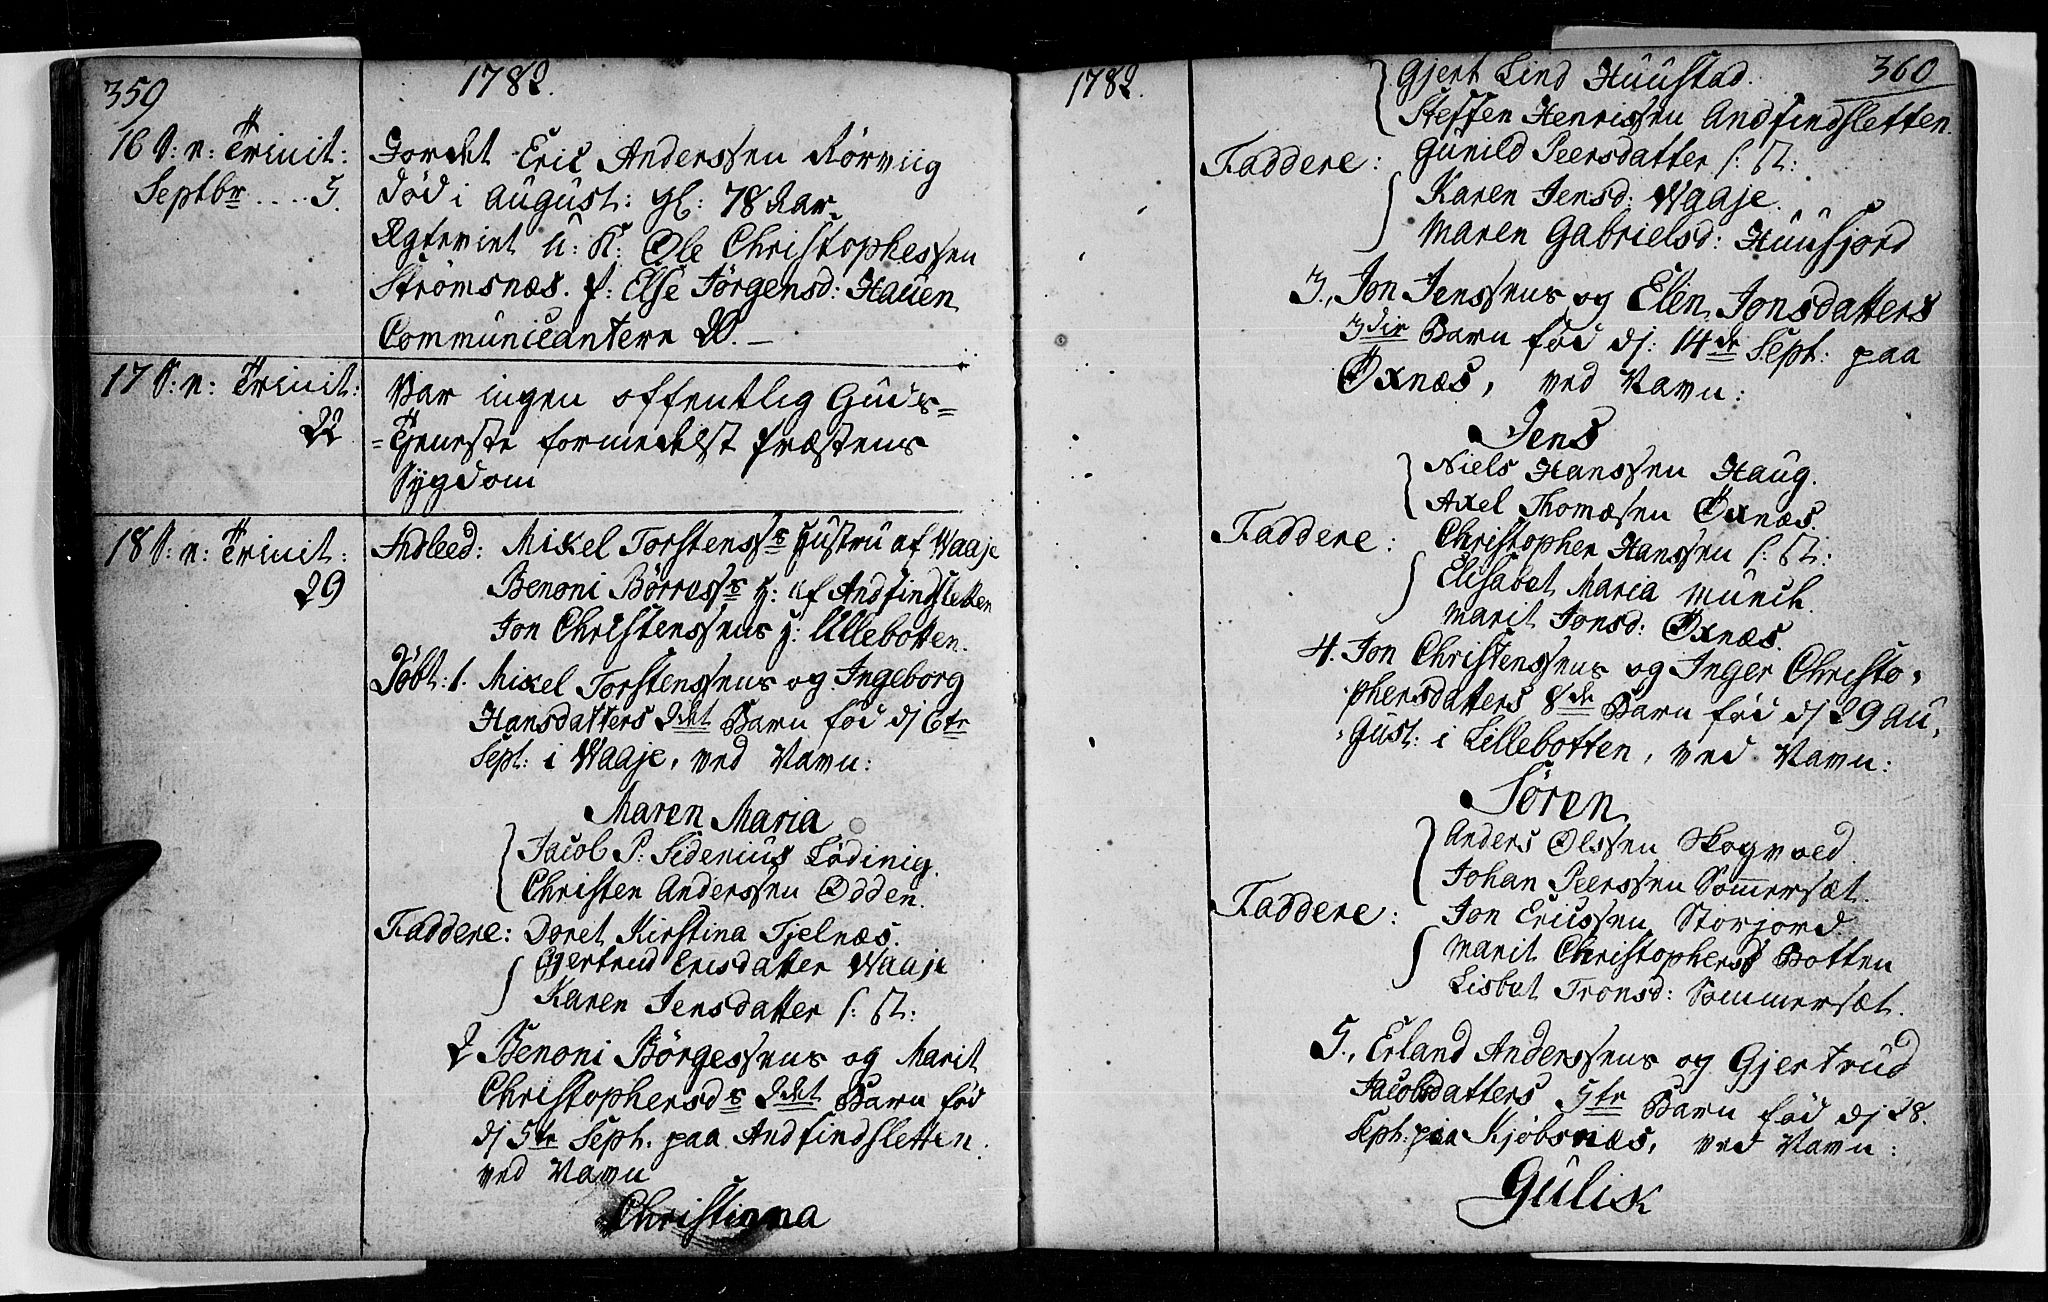 359
1782.
16 S: n: Trinit:
Septbr .... 5.
Jordet Eric Anderssen Rörviig
död i august: gl: 78 Aar.
Ægteviet u: K: Ole Christophessen
Strømsnæs. p: Else Jörgensd: Hauen
Communicantere 20. —
17 S: n: Trinit:
22
Var ingen offentlig Guds=
=Tjeneste formedelst Præstens
Sygdom
18 S: n: Trinit:
29
Indleed: Mikel Torstenss:s Hustru af Waaje
Benoni Börress:s H: af Andfindsletten
Jon Christenssens H: Lillebotten.
Döbt: 1. Mikel Torstenssens og Ingeborg
Hansdatters 2det Barn föd dj 6te
Sept: i Waaje, ved Navn:
Maren Maria
Jacob P: Sidenius Lödinig.
Christen Anderssen Odden.
Faddere: Doret Kirstina Fjelnæs.
Gjertrud Ericsdatter Waaje
Karen Jensdatter s: St:
2 Benoni Börgessens og Marit
Christophersd:s 2det Barn föd
dj 5te Sept. paa Andfindsletten.
ved Navn
Christianna
1782.
360
Gjert Lind Huustad.
Steffen Henrissen Andfindsletten.
Faddere: Gunild Peersdatter s: St:
Karen Jensd: Waaje.
Maren Gabrielsd: Huusjord
3., Jon Jenssens og Elen Jonsdatters
3die Barn föd dj: 14de Sept: paa
Öxnæs, ved Navn:
Jens
Niels Hanssen Haug.
Axel Thomæsen Öxnæs.
Faddere: Christopher Hanssen s: St:
Elisabet Maria Munch.
Marit Jonsd: Öxnæs.
4. Jon Christenssens og Inger Christo=
phersdatters 8de Barn föd dj 29 Au=
=gust: i Lillebotten, ved Navn:
Sören
Anders Olssen Skogvoed.
Johan Peerssen Sommersæt.
Faddere: Jon Ericssen Storjord
Marit Christophersd Botten
Lisbet Tronsd: Sommersæt.
5., Erland Anderssens og Gjertrud
Jacobsdatters 5te Barn föd dj 28.
Sept: paa Kjöbsnæs, ved Navn:
Gulik